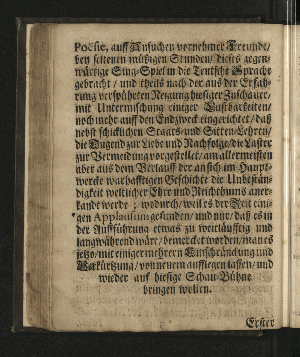 Poësie, auff Ansuchen vornehmer Freunde/
bey seltenen müßigen Stunden/ dieses gegen-
wärtige Sing-Spiel in die Teutsche Sprache
gebracht / und theils nach der aus der Erfah-
rung verspührten Neigung hiesiger Zuschauer/
mit Untermischung einiger Lustbarkeiten/
noch mehr auff den Endzweck eingerichtet/ daß
nebst schicklichen Staats- und Sitten-Lehren/
die Tugend zur Liebe und Nachfolge/ die Laster
zur Vermeidung vorgestellet/ am allermeisten
aber aus dem Verlauff der an sich im Haupt-
wercke warhafftigen Geschichte die Unbestän-
digkeit weltlicher Ehre und Reichthums aner-
kandt werde ; wodurch/ weil es der Zeit eini-
gen Applausum gefunden/ und nur/ daß es in
der Aufführung etwas zu weitläufftig und
langwährend wäre/ bemercket worden/ man es
jetzo/ mit einiger mehrern Einschränckung und
Verkürtzung/ von neuem aufflegen lassen/ und
wieder auf hiesige Schau-Bühne
bringen wollen.
Erster